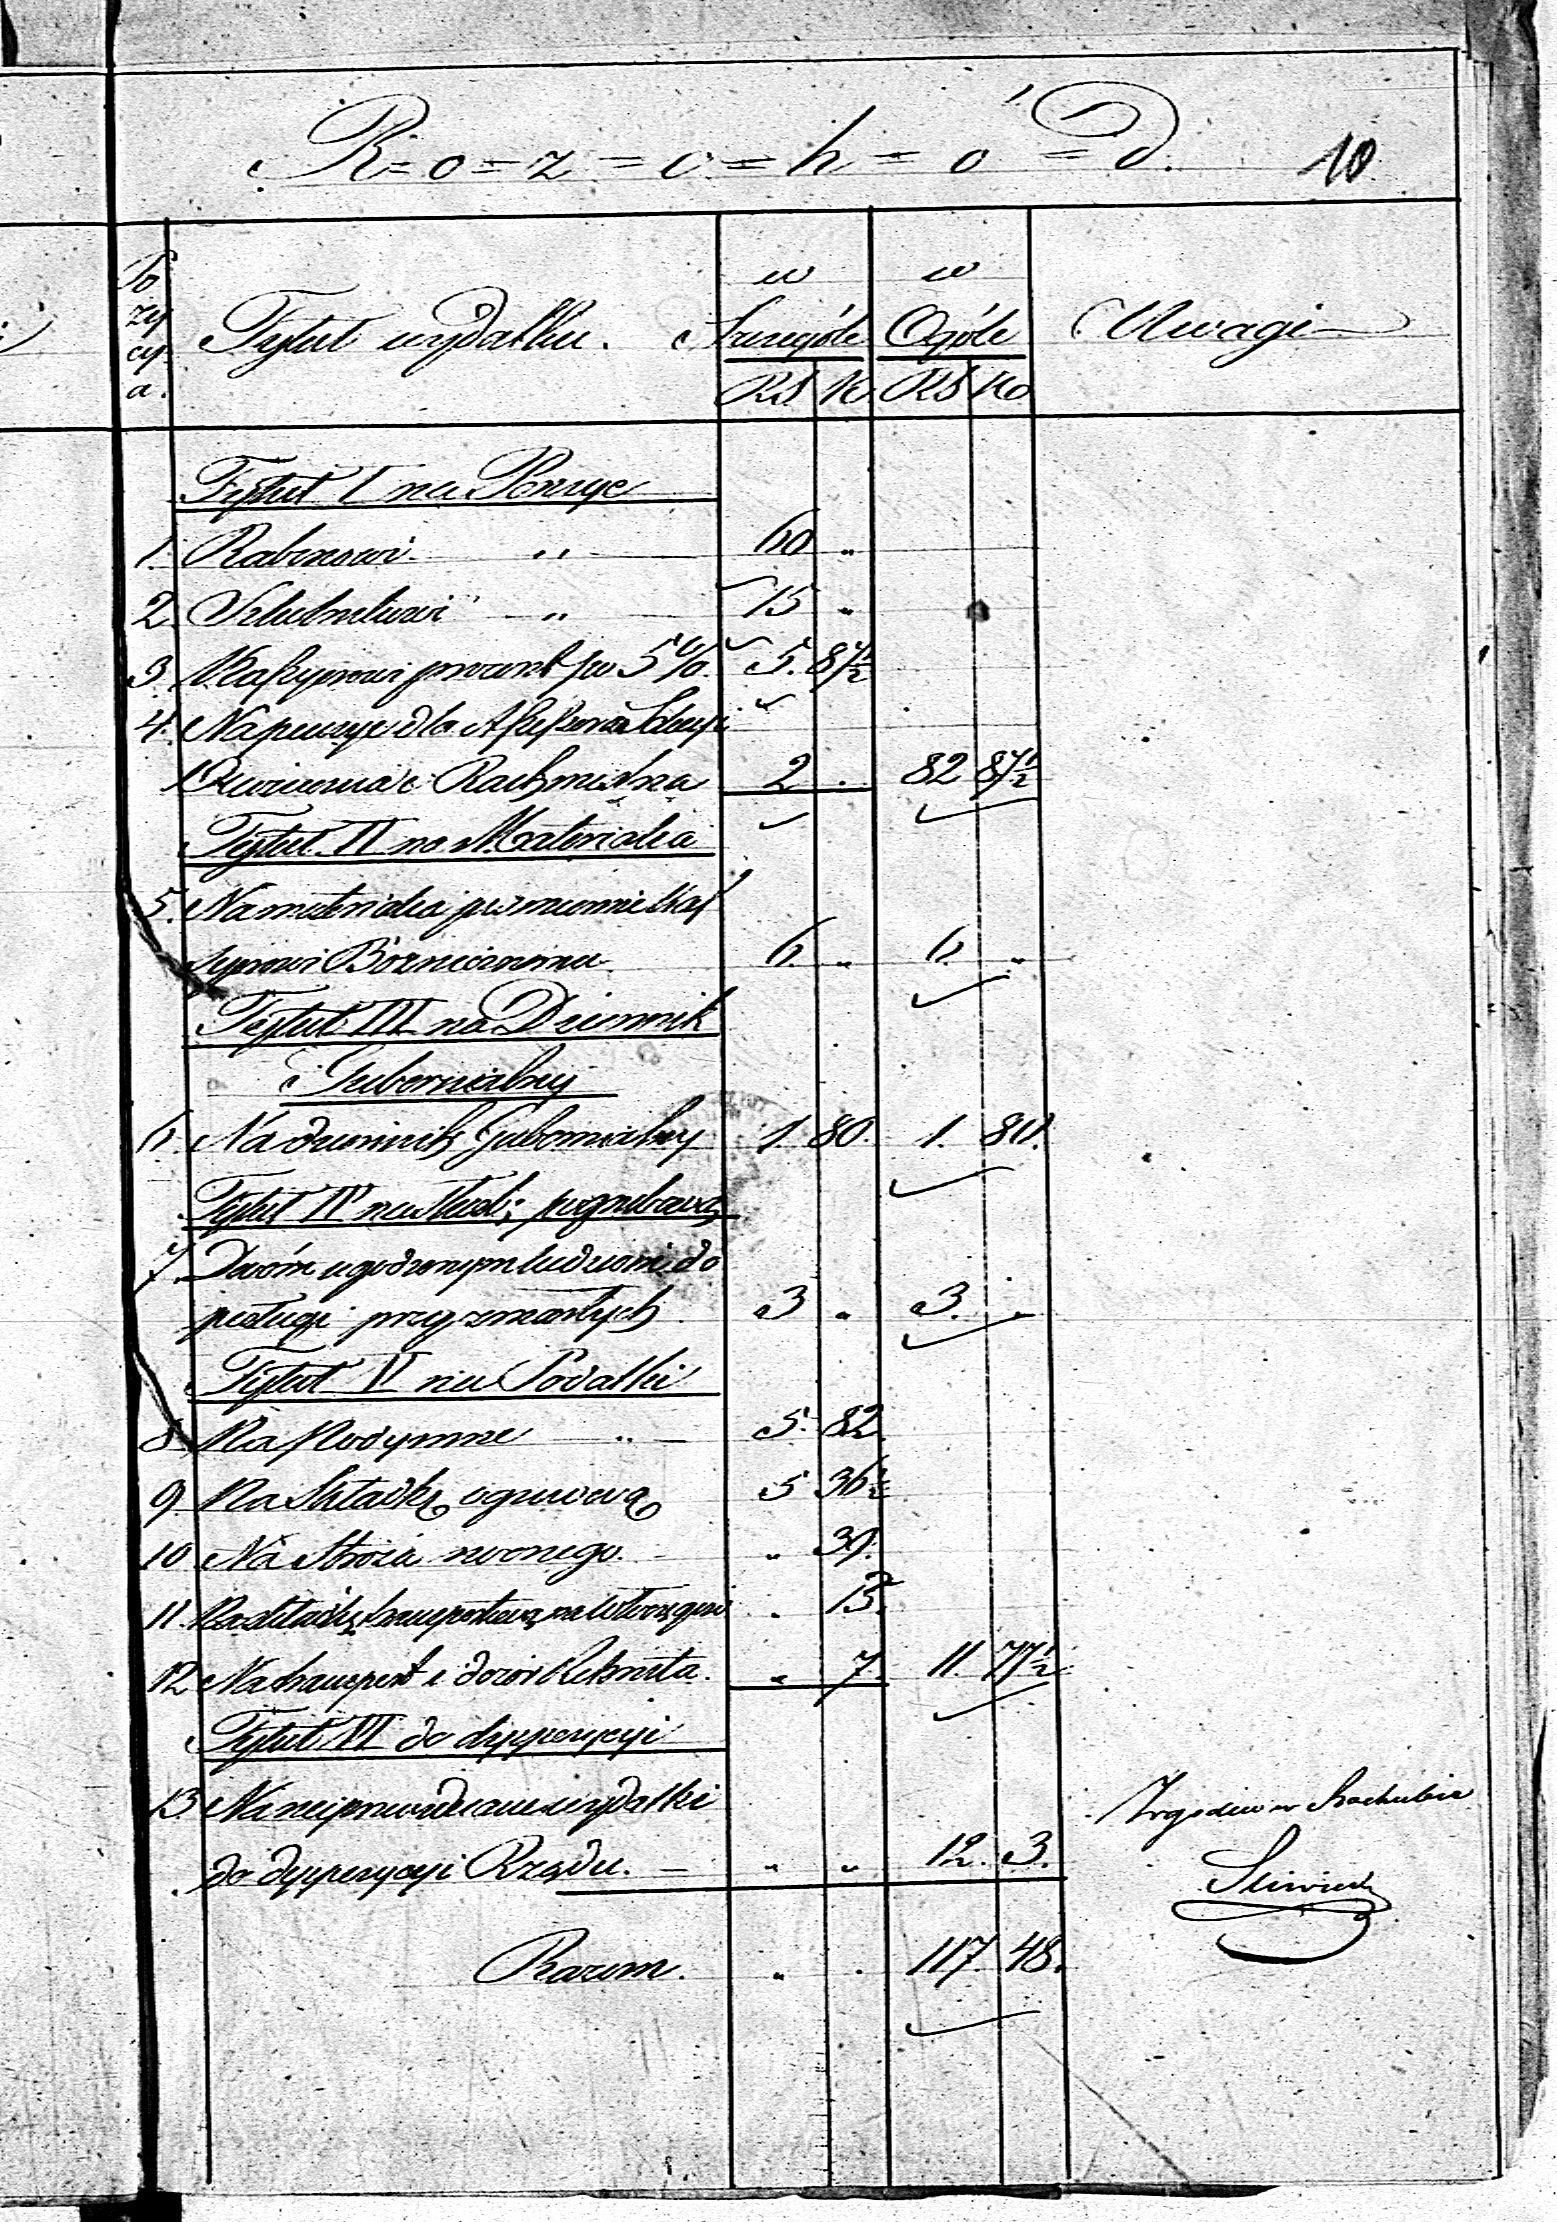 R=o=z=c=h=ó=D.
10
Po
zy
cy
a.
Tytuł wydatku.
w Szczególe
w Ogóle
Uwagi
RS K. RS Ko
Tytuł I na Pensye
1. Rabinowi " 60 "
2. Szkolnikowi " 15 "
3. Kassyerowi procent po 5%. 5. 87½
4. Na pensye dla
i Rachmistrza 2 . 82 87½
Tytuł II na Materialia
5. Na materialia piśmienne Kas
syerowi Bożniczemu 6. " 6. "
Tytuł III na Dziennik
Gubernialny
6. Na dziennik Gubernialny 1. 80. 1. 80.
Tytuł IV na pogrzebową
7. Dwóm ugodzonym ludziom do
posługi przy zmarłych 3 " 3. "
Tytuł V na Podatki
8. Na Podymne " 5. 82.
9. Na Składkę ogniową 5 36½
10 Na Stróża nocnego. " 39.
11. Na składkę transportową . 13.
12 Na transport i dozór Rekruta. " 7. 11. 77½
Tytuł VI do dyspozycyi
13. Na nieprzewidziane wydatki
do dyspozycyi Rządu. " " 12. 3.
Zgodno w Rachubie
Razem. " . 117. 48.